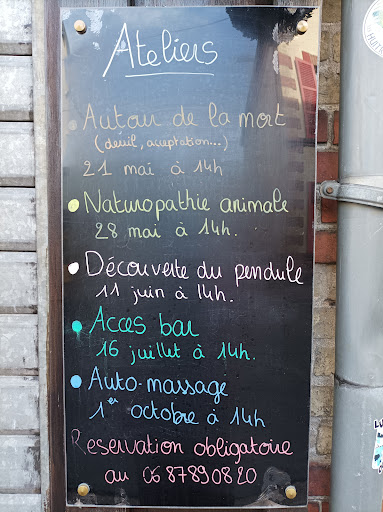 Ateliers
• Autour de la mort
(deuil, acceptation...)
21 mai à 14h
• Naturopathie animale
28 mai à 14h.
• Découverte du pendule
11 juin à 14h.
• Acces bar
16 juillet à 14h.
• Auto-massage
1er octobre à 14h
Reservation obligatoire
au 06 87890820